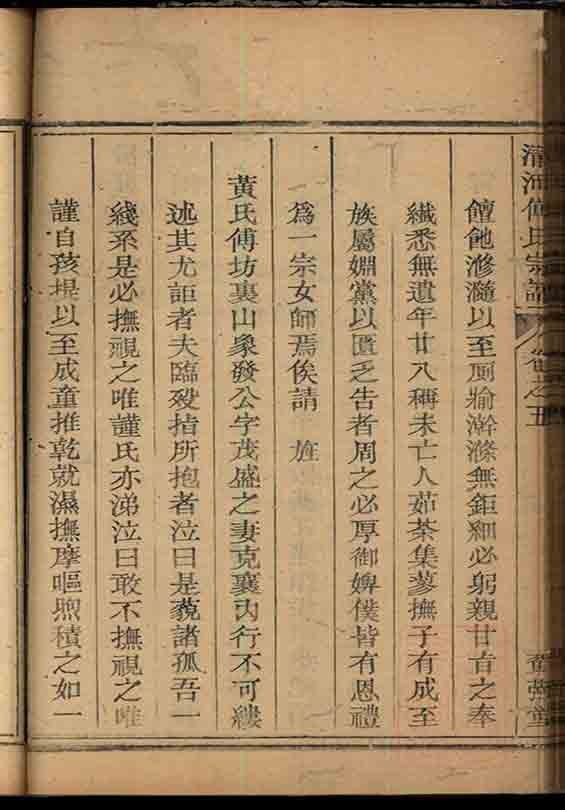 清河傅氏宗譜 卷之五
饘飿滫瀡以至厠牏澣滌無鉅細必躬親甘旨之奉
繊悉無遺年廿八稱未亡人茹荼集蓼撫子有成至
族屬婣黨以匱乏告者周之必厚御婢僕皆有恩禮
爲一宗女師焉俟請 旌
黃氏傅坊裏山象發公字茂盛之妻克襄內行不可縷
述其尤詎者夫臨歿指所抱者泣曰是藐諸孤吾一
綫系是必撫視之唯謹氏亦涕泣曰敢不撫視之唯
謹自孩提以至成童推乾就濕撫摩嘔煦積之如一